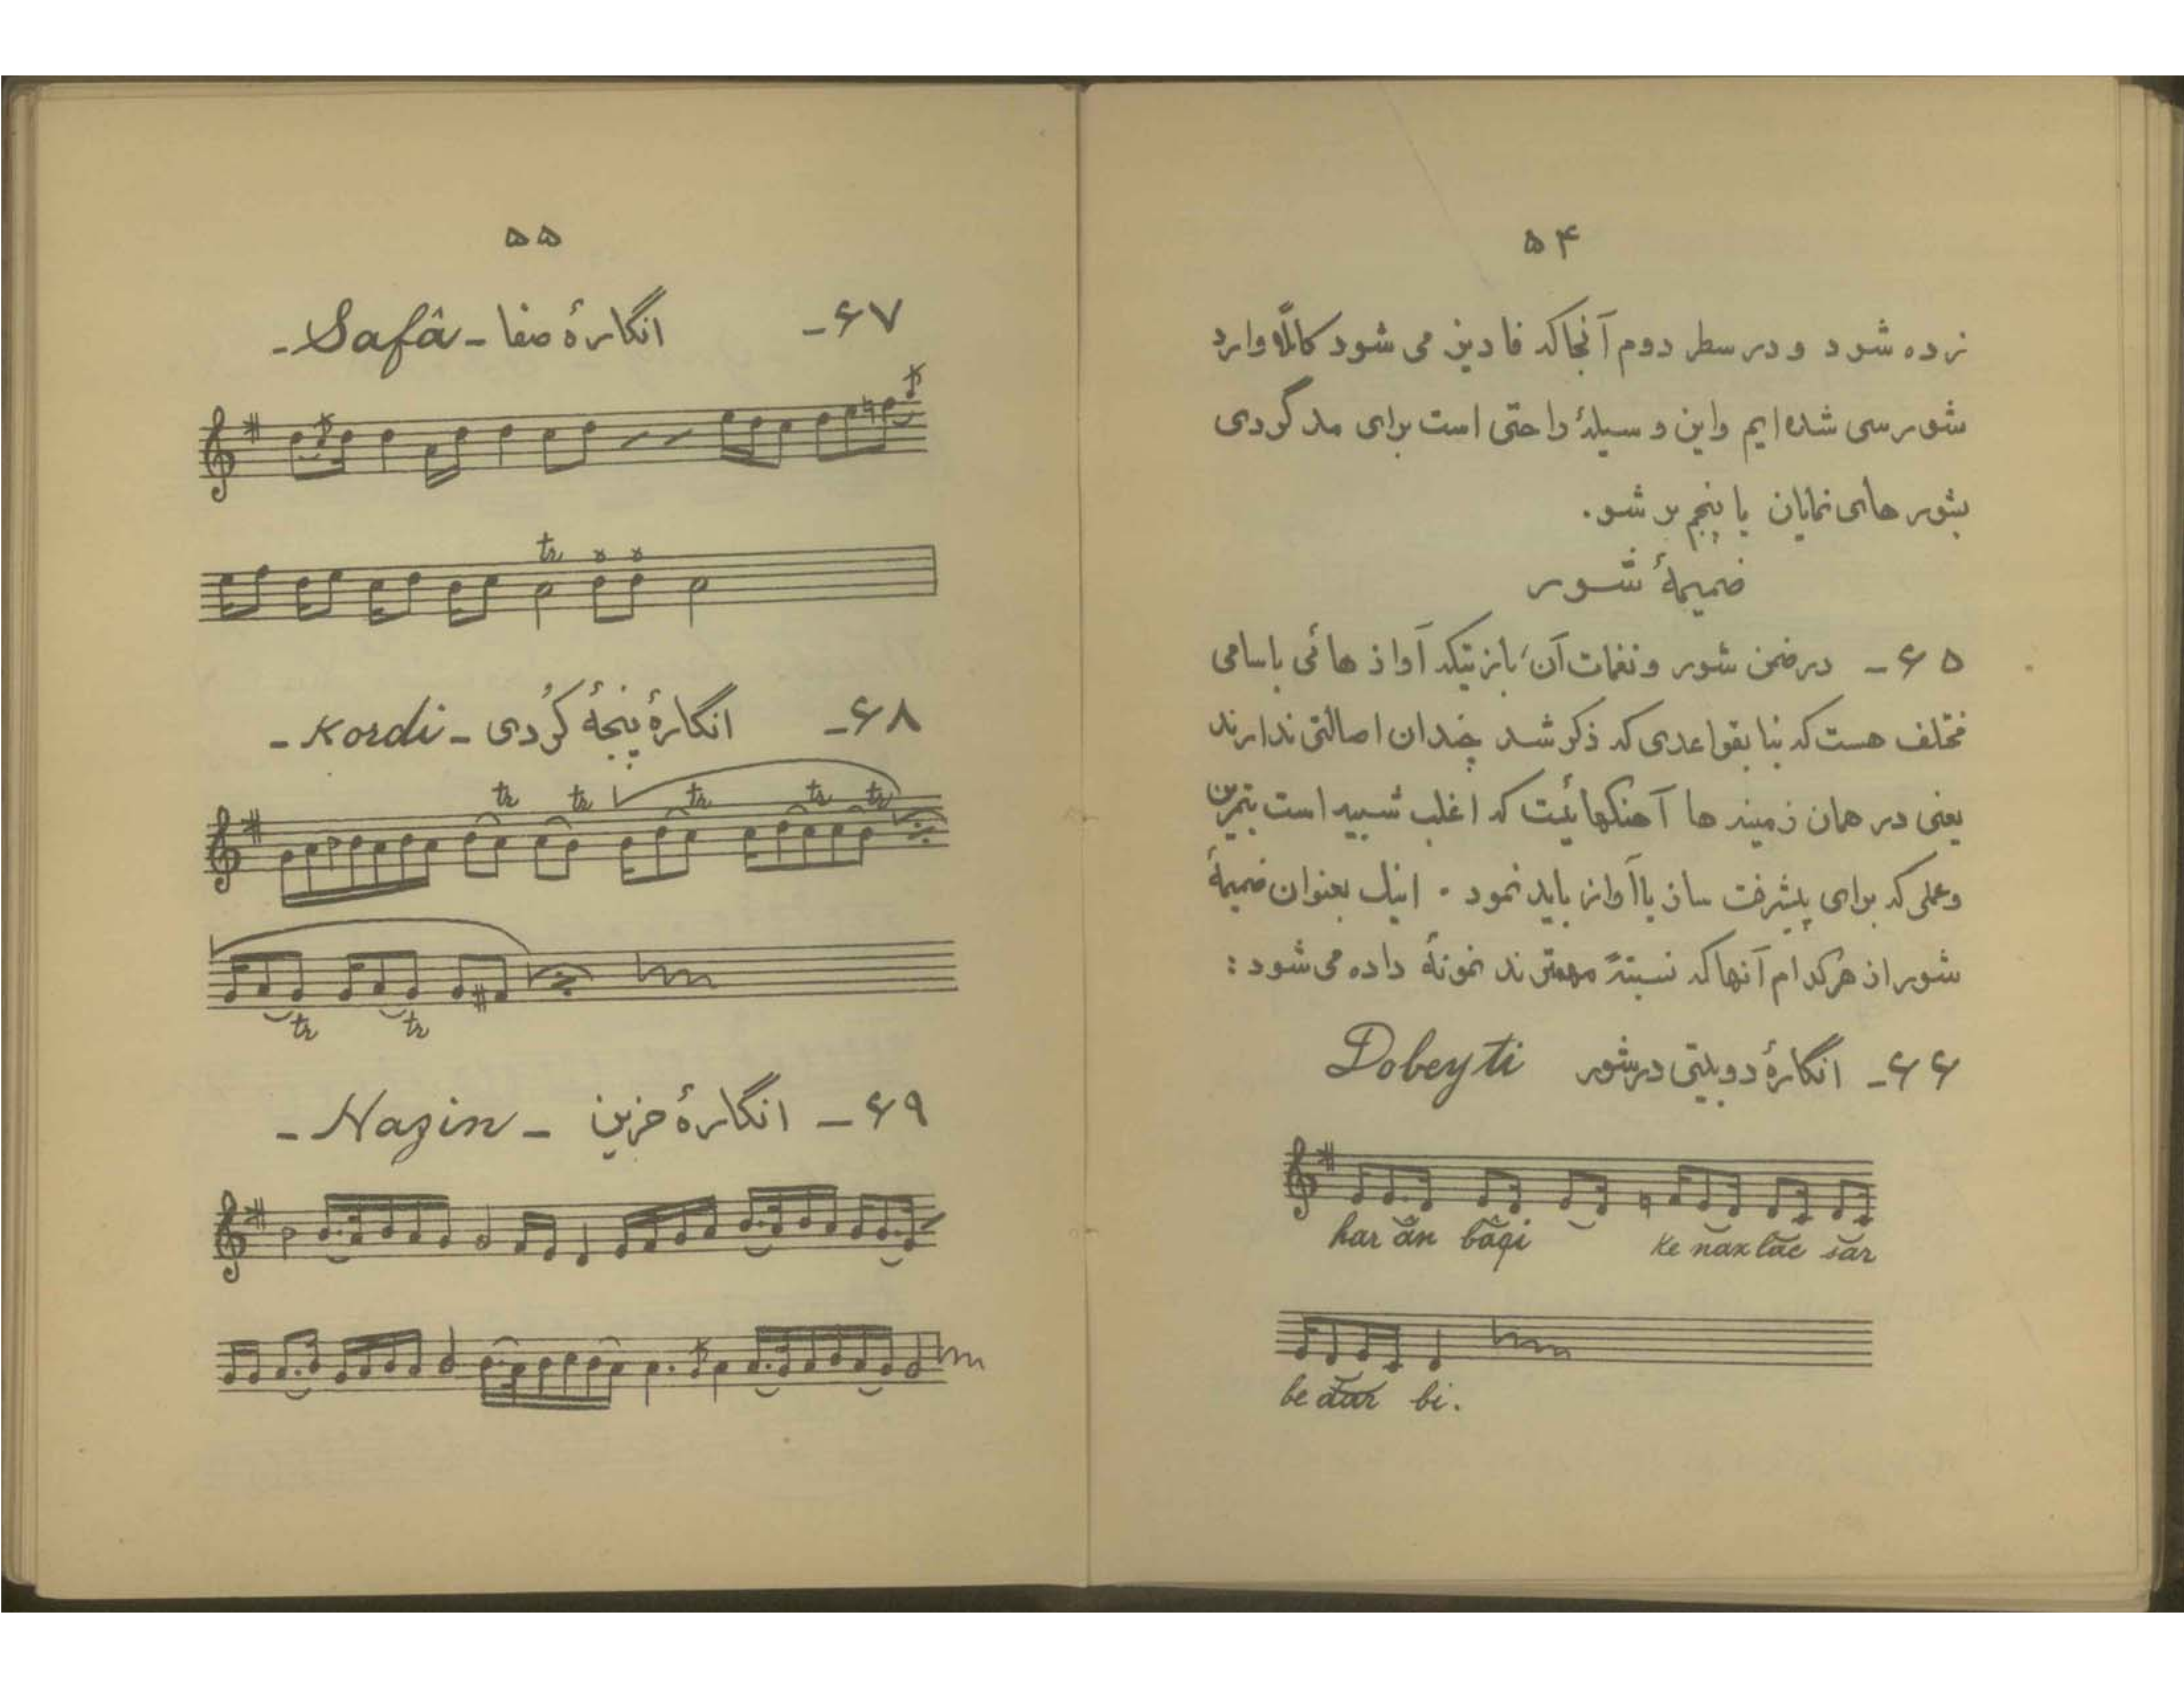 ۵۴
زده شود و در سطر دوم آنجا که فا دیز می شود کاملاً وارد
شور سی شده ایم و این وسیلهٔ راحتی است برای مدگردی
بشورهای نمایان یا پنجم بر شو.
ضمیمهٔ شور
۶۵ - در ضمن شور و نغمات آن، باز تیکه آواز هائی باسامی
مختلف هست که بنا بقواعدی که ذکر شد چندان اصالتی ندارند
یعنی در همان زمینه ها آهنگهائیست که اغلب شبیه است بتمرین
و عملی که برای پیشرفت ساز یا آواز باید نمود . اینک بعنوان ضمیمهٔ
شور از هر کدام آنها که نسبتهً مهمترند نمونهٔ داده می شود :
۶۶ - انگارهٔ دوبیتی در شور Dobeyti
har ân bâqi ke nax lâe sar
be dar bi.
۵۵
۶۷ - انگارهٔ صفا - Safâ -
tr
۶۸ - انگارهٔ پنجهٔ کُردی - Kordi -
tr tr tr tr tr
tr tr
۶۹ - انگارهٔ حزین - Hazin -